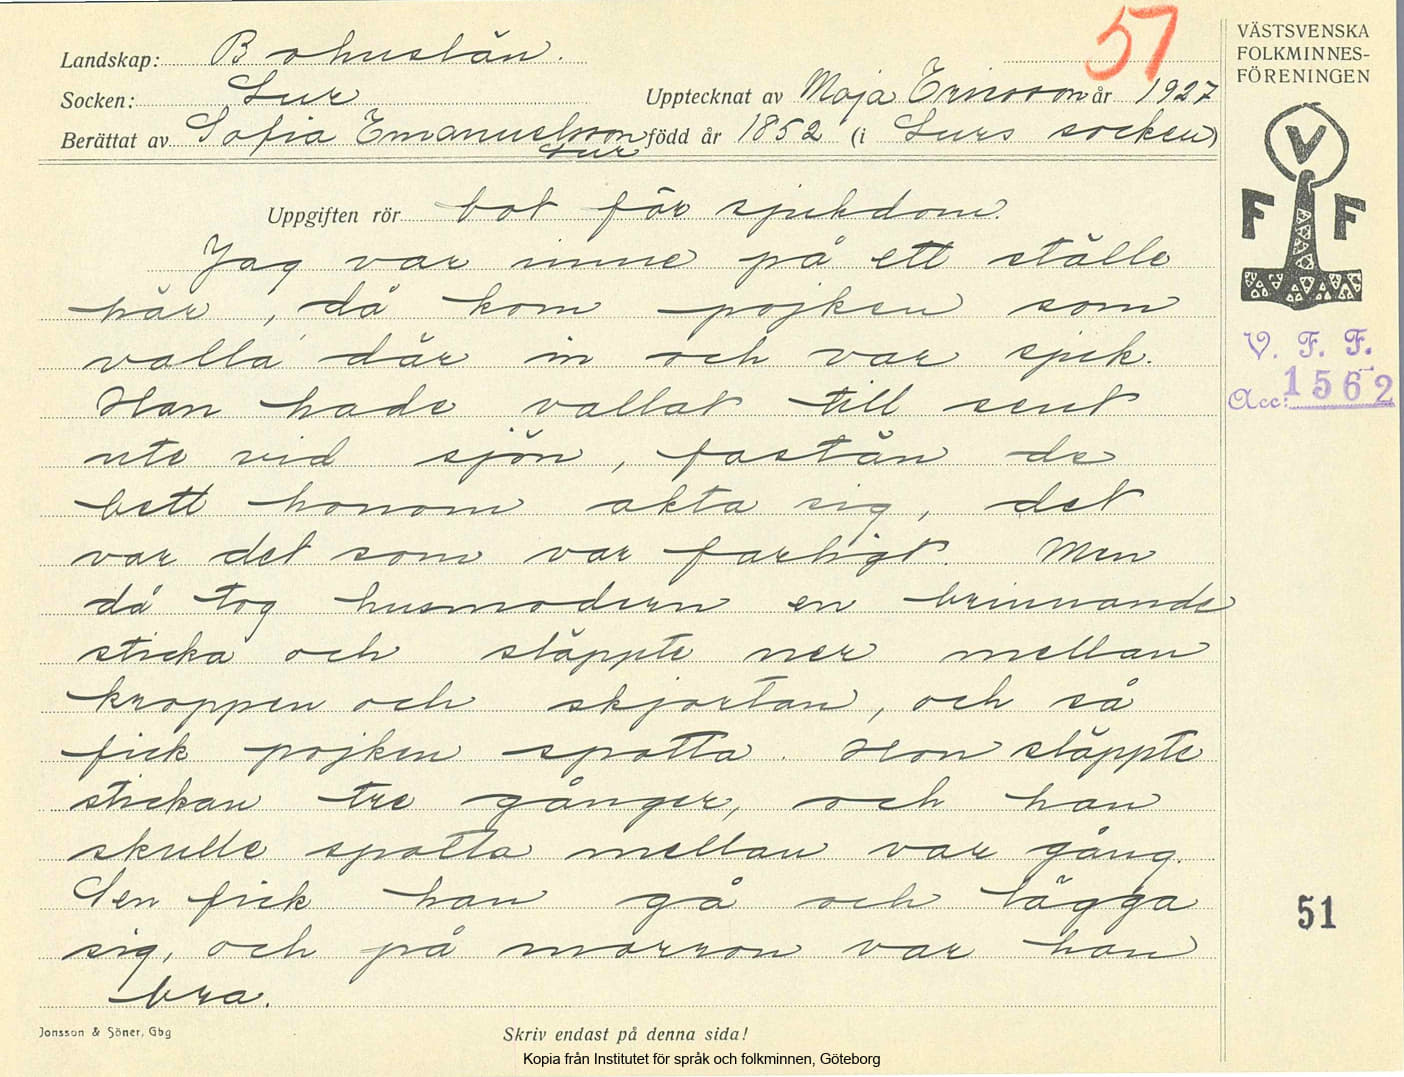 57
Landskap: Bohuslän.
Socken: Lur
Upptecknat av Maja Ericson år 1927
Berättat av Sofia Emanuelsson född år 1852 (i Lurs socken)
Lur
Uppgiften rör bot för sjukdom.
Jag var inne på ett ställe
här, då kom pojken som
valla' där in och var sjuk.
Han hade vallat till sent
ute vid sjön, fastän de
bett honom akta sig, det
var det som var farligt. Men
då tog husmodern en brinnande
sticka och släppte ner mellan
kroppen och skjortan, och så
fick pojken spotta. Hon släppte
stickan tre gånger, och han
skulle spotta mellan var gång.
Sen fick han gå och lägga
sig, och på morron var han
bra.
Jonsson & Söner, Gbg
Skriv endast på denna sida!
VÄSTSVENSKA
FOLKMINNES-
FÖRENINGEN
V
F F
V. F. F.
Acc: 1562
51
Kopia från Institutet för språk och folkminnen, Göteborg